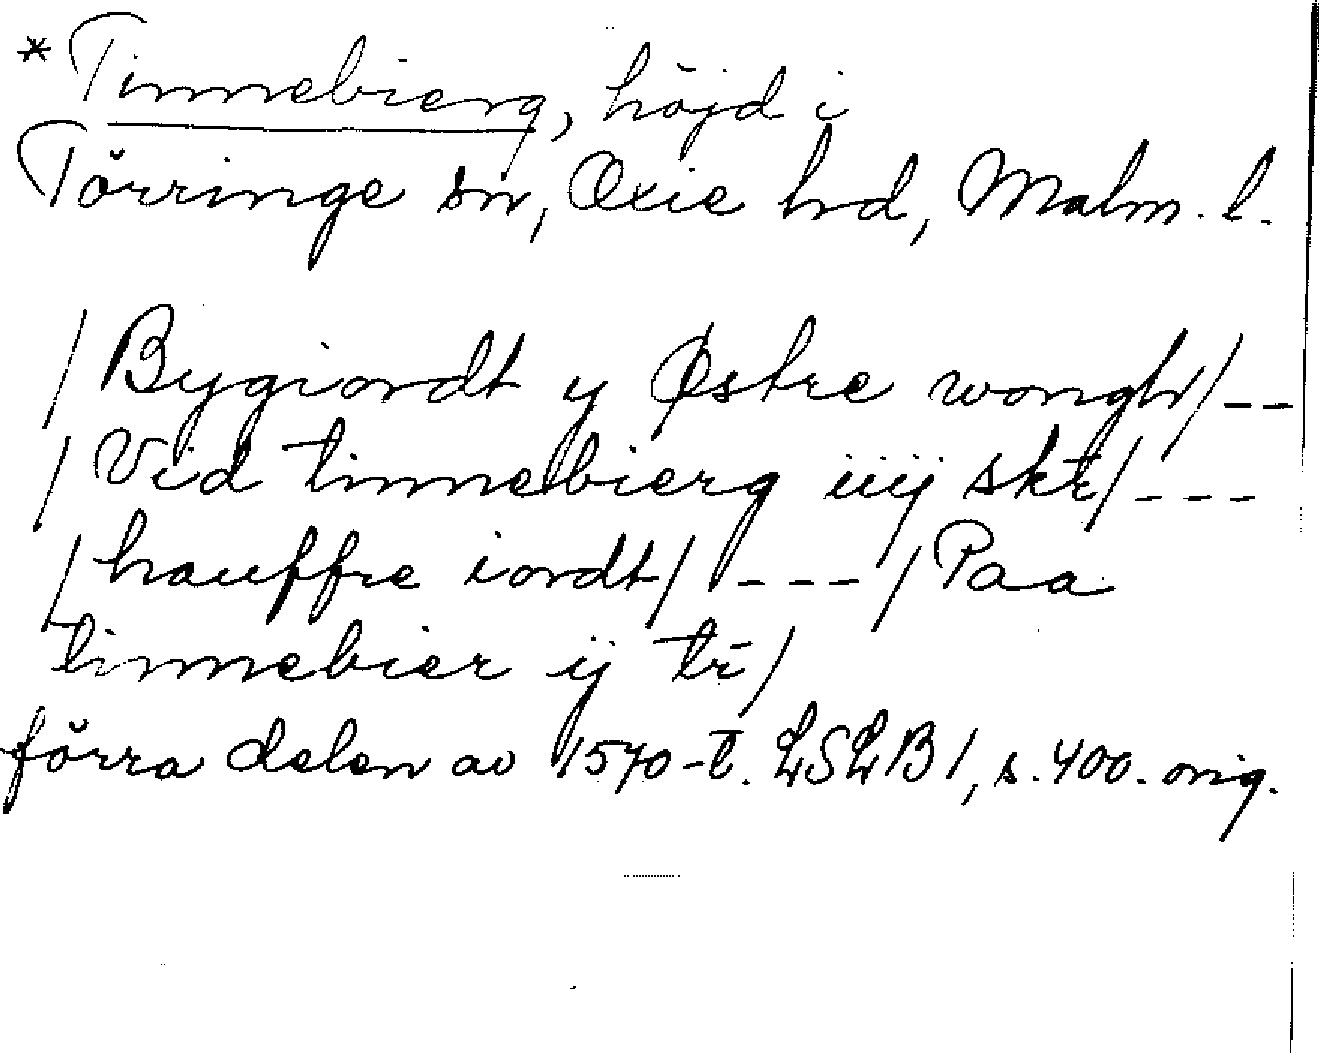 *Tinnebierg, höjd i
Törringe sn, Oxie hrd, Malm. l.
/Bygiordt y Østre wongh/ --
/Vid tinnebierg iiij skr̄/ ---
/hauffre iordt/ --- /Paa
tinnebier ij tr̄/
förra delen av 1570-t. LSLB 1, s. 400. orig.